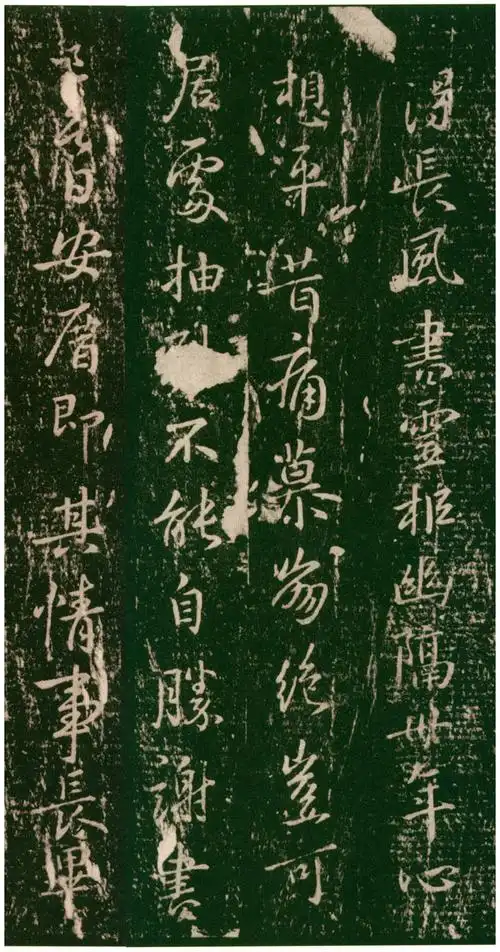 得長風書靈柩幽隔卅年心
想平昔痛慕崩絕豈可
居處抽不能自勝謝書
安厝即其情事長畢